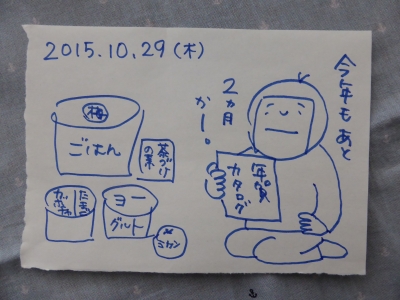 2015.10.29(木)
今年もあと
2ヵ月
かー。
梅
ごはん
茶づけ
の素
年賀
カタログ
ヨー
グルト
ミカン